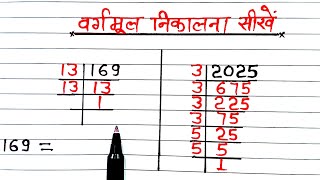 वर्गमूल निकालना सीखें
13 | 169
13 | 13
1
169 =
3 | 2025
3 | 675
3 | 225
3 | 75
5 | 25
5 | 5
1